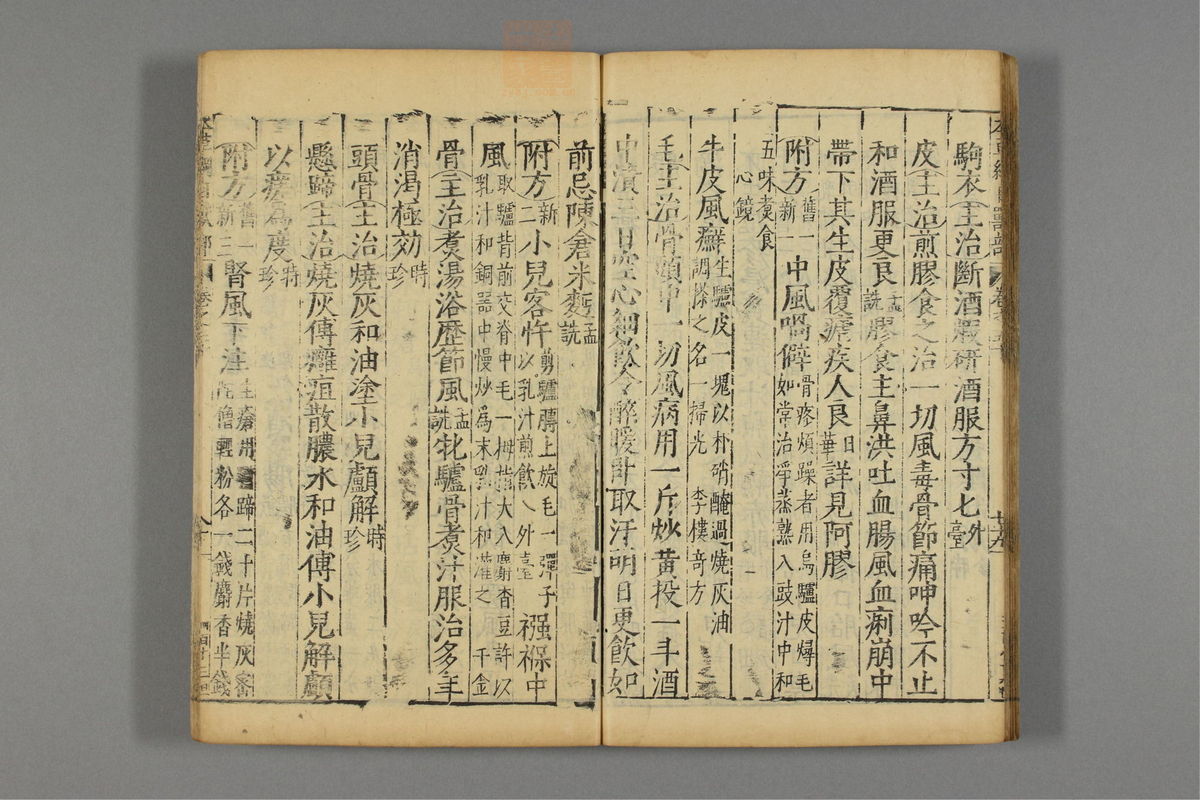 駒衣主治斷酒煆研酒服方寸七外臺
皮主治煎膠食之治一切風毒骨節痛呻吟不止
和酒服更良孟詵膠食主鼻洪吐血腸風血痢崩中
帶下其生皮覆瘧疾人良日華詳見阿膠
附方舊一新一中風喎僻骨疼煩躁者用烏驢皮燖毛如常治淨蒸熟入豉汁中和
五味煑食心鏡
牛皮風癬生驢皮一塊以朴硝醃過燒灰油調搽之名一掃光李樓奇方
毛主治骨頭中一切風病用一斤炒黃投一斗酒
中漬三日空心細飲令醉暖卧取汗明日更飲如
前忌陳倉米麪孟詵
附方新二小兒客忤剪驢膊上旋毛一彈子以乳汁煎飲外臺襁褓中
風取驢背前交脊中毛一拇指大入麝香豆許以乳汁和銅器中慢炒爲末乳汁和灌之千金
骨主治煑湯浴歷節風孟詵牝驢骨煑汁服治多年
消渴極効時珍
頭骨主治燒灰和油塗小兒顱解時珍
懸蹄主治燒灰傅癰疽散膿水和油傅小兒解顱
以瘥爲度時珍
附方舊一新三腎風下注生瘡用驢蹄二十片燒灰密陀僧輕粉各一錢麝香半錢